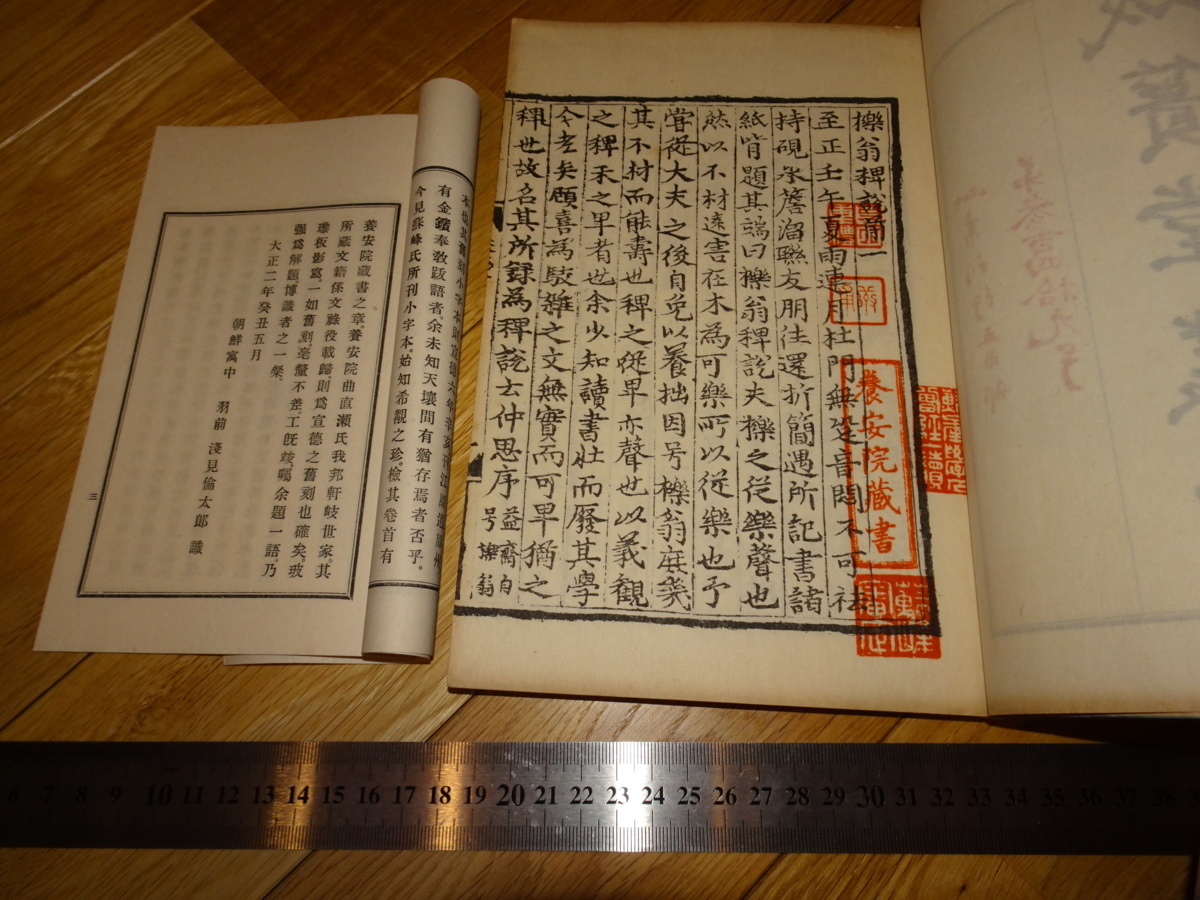 櫟翁稗說前一
至正壬午夏雨連月杜門無跫音悶不可祛
持硯承簷溜聯友朋往還折簡遇所記書諸
紙背題其端曰櫟翁稗說夫櫟之從樂聲也
然以不材遠害在木為可樂所以從樂也予
甞從大夫之後自免以養拙因号櫟翁庶幾
其不材而能壽也稗之從卑亦聲也以義觀
之稗禾之卑者也余少知讀書壯而廢其學
今老矣顧喜為駁雜之文無實而可卑猶之
稗也故名其所録為稗說云仲思序 益齋自号櫟翁
養安院藏書
有金鑚奉教跋語者余未知天壤間有猶存焉者否乎。
今見蘇峰氏所刊小字本、始知希覯之珍。檢其卷首有
養安院藏書之章、養安院曲直瀨氏、我邦軒岐世家、其
所藏文籍係文祿役載歸則爲宣德之舊刻也確矣。玻
瓈板影寫、一如舊刻、毫釐不差、工既竣、囑余題一語、乃
强爲解題、博識者之一粲。
大正二年癸丑五月
朝鮮寓中 羽前 淺見倫太郎 識
三
6 7 8 9 10 11 12 13 14 15 16 17 18 19 20 21 22 23 24 25 26 27 28 29 30 31 32 33 34 35 36 37 38